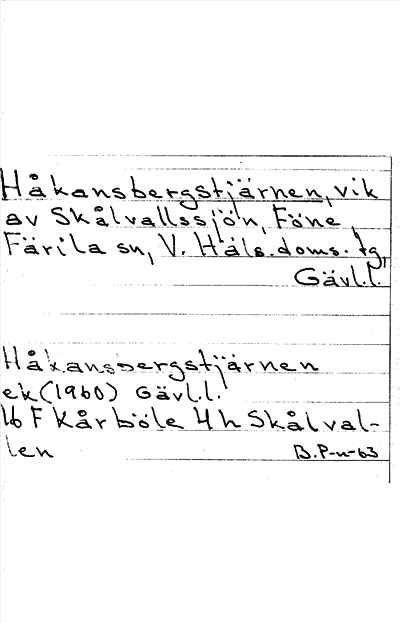 Håkansbergstjärnen, vik
av Skålvallssjön, Föne,
Färila sn, V. Häls. doms. tg,
Gävl.l.
Håkansbergstjärnen
ek (1960) Gävl.l.
16 F Kårböle 4h Skålval-
len B.P-n-63